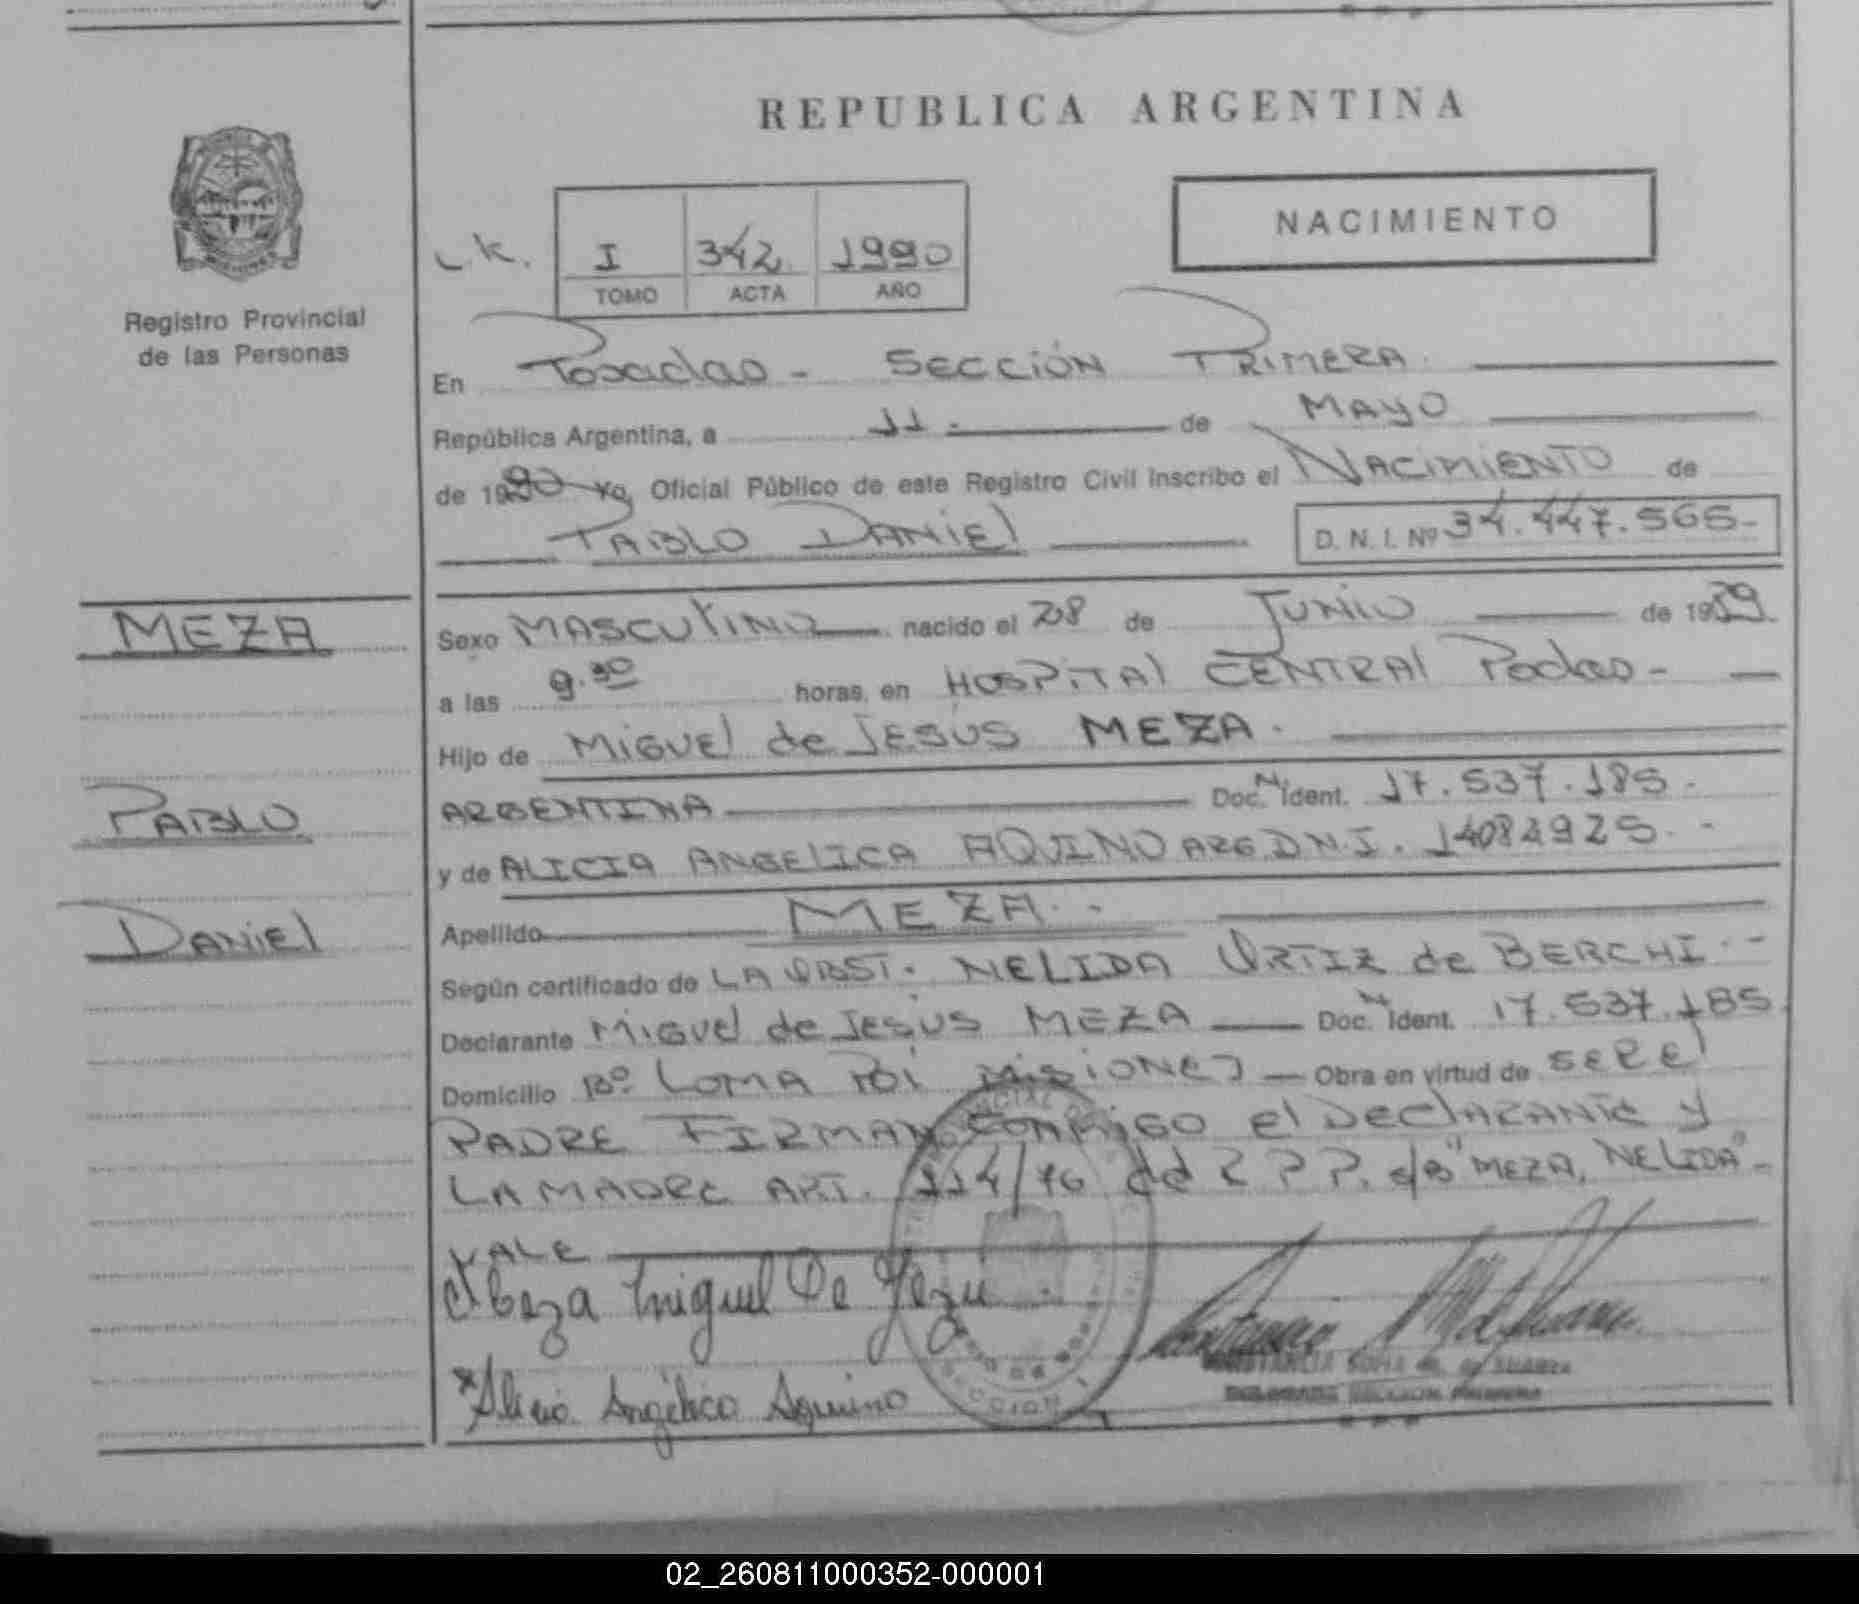 REPUBLICA ARGENTINA
NACIMIENTO
I 342 1990
TOMO ACTA AÑO
Registro Provincial
de las Personas
En Posadas - SECCIÓN PRIMERA
República Argentina, a 11. de MAYO
de 1990 yo, Oficial Público de este Registro Civil inscribo el NACIMIENTO de
PABLO DANIEL D. N. I. Nº 34.447.565-
MEZA
PABLO
DANIEL
Sexo MASCULINO nacido el 28 de JUNIO de 1989
a las 9.30 horas, en HOSPITAL CENTRAL Podas -
Hijo de MIGUEL de JESÚS MEZA.
ARGENTINA Doc. Nº Ident. 17.537.185.
y de ALICIA ANGELICA AQUINO ARG. D.N.I. 14084925.-
Apellido MEZA.-
Según certificado de LA OBST. NELIDA ORTIZ de BERCHI.-
Declarante MIGUEL de JESÚS MEZA Doc. Nº Ident. 17.537.185
Domicilio Bº LOMA POI MISIONES - Obra en virtud de SER El
PADRE FIRMAN CONMIGO El DECLARANTE y
LA MADRE ART. 114/76 del R P P. s/B "MEZA, NELIDA" -
VALE
Meza Miguel De Jezu
Alicia Angélica Aquino
CONSTANCIA SOFIA M. de SUAREZ
DELEGADA SECCION PRIMERA
SECCION 1
02_260811000352-000001